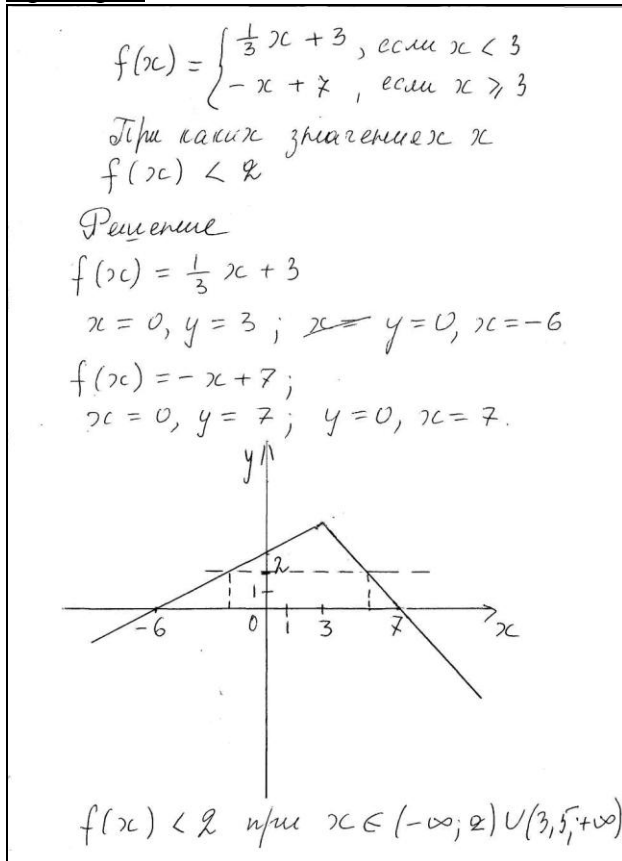 f(x) = { 1/3 x + 3, если x < 3
− x + 7, если x ⩾ 3
При каких значениях x
f(x) < 2
Решение
f(x) = 1/3 x + 3
x = 0, y = 3 ; x= y = 0, x = −6
f(x) = − x + 7;
x = 0, y = 7; y = 0, x = 7.
y
2
1
−6 0 1 3 7 x
f(x) < 2 при x ∈ (−∞; 2) ∪ (3,5; +∞)